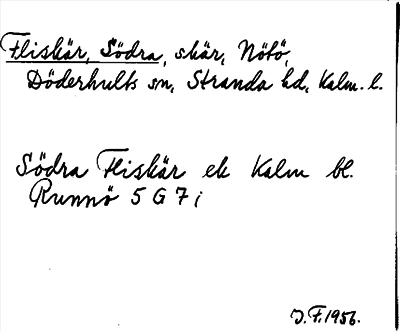 Fliskär, Södra, skär, Nötö,
Döderhults sn, Stranda hd, Kalm. l.
Södra Fliskär ek Kalm bl.
Runnö 5 G 7 i
J. F. 1956.